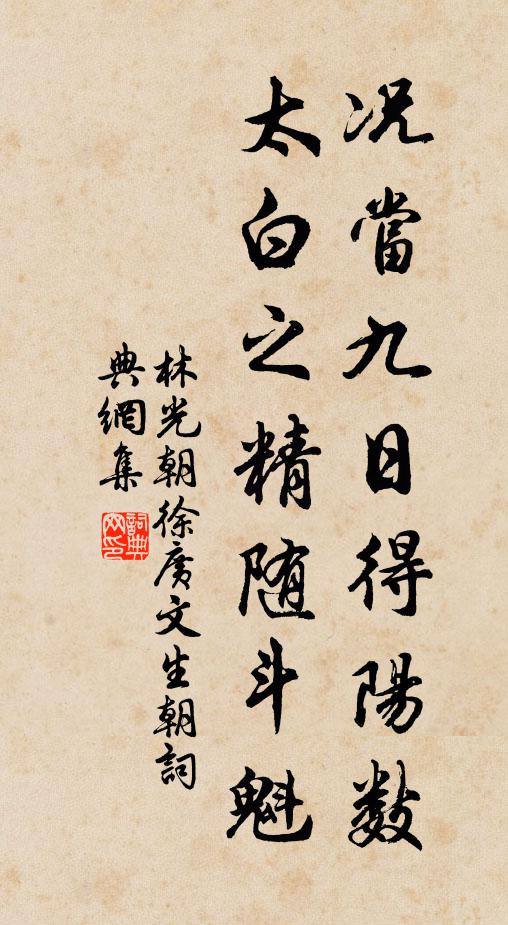 况當九日得陽数
太白之精随斗魁
林光朝徐廣文生朝詞
典網集
詞典
网印